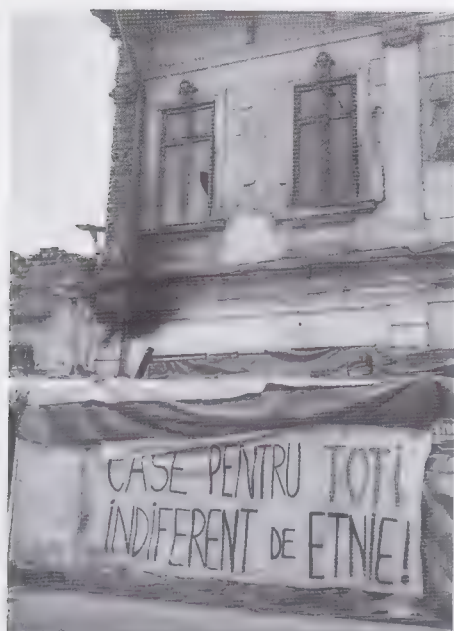 CASE PENTRU TOTI
INDIFERENT DE ETNIE!